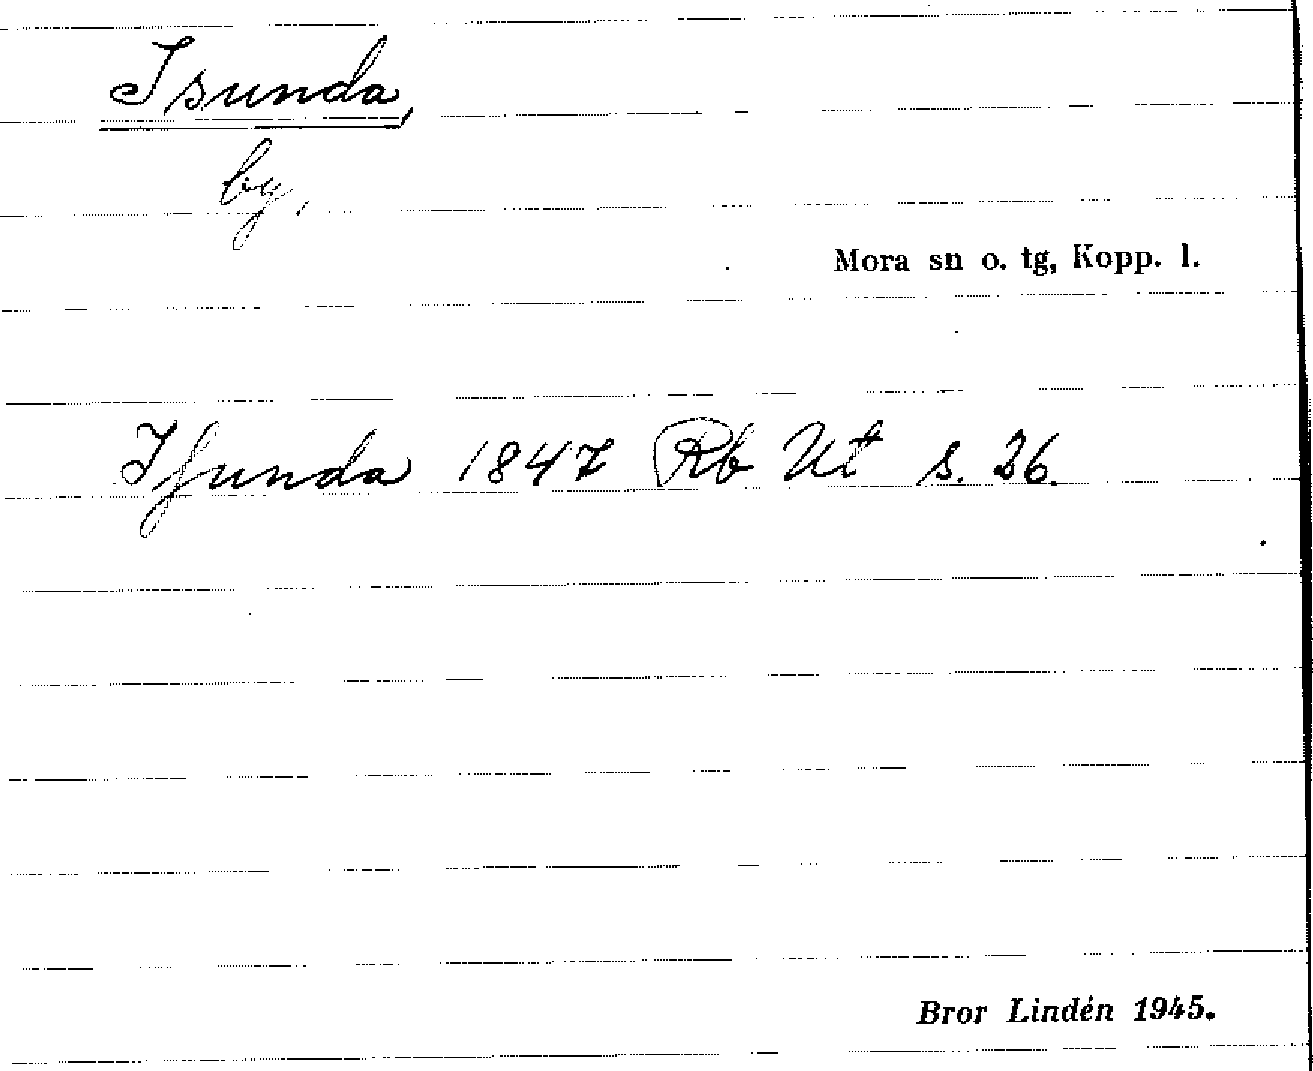 Isunda,
by,
Mora sn o. tg, Kopp. l.
Iſunda 1847 Rb Ut s. 26.
Bror Lindén 1945.